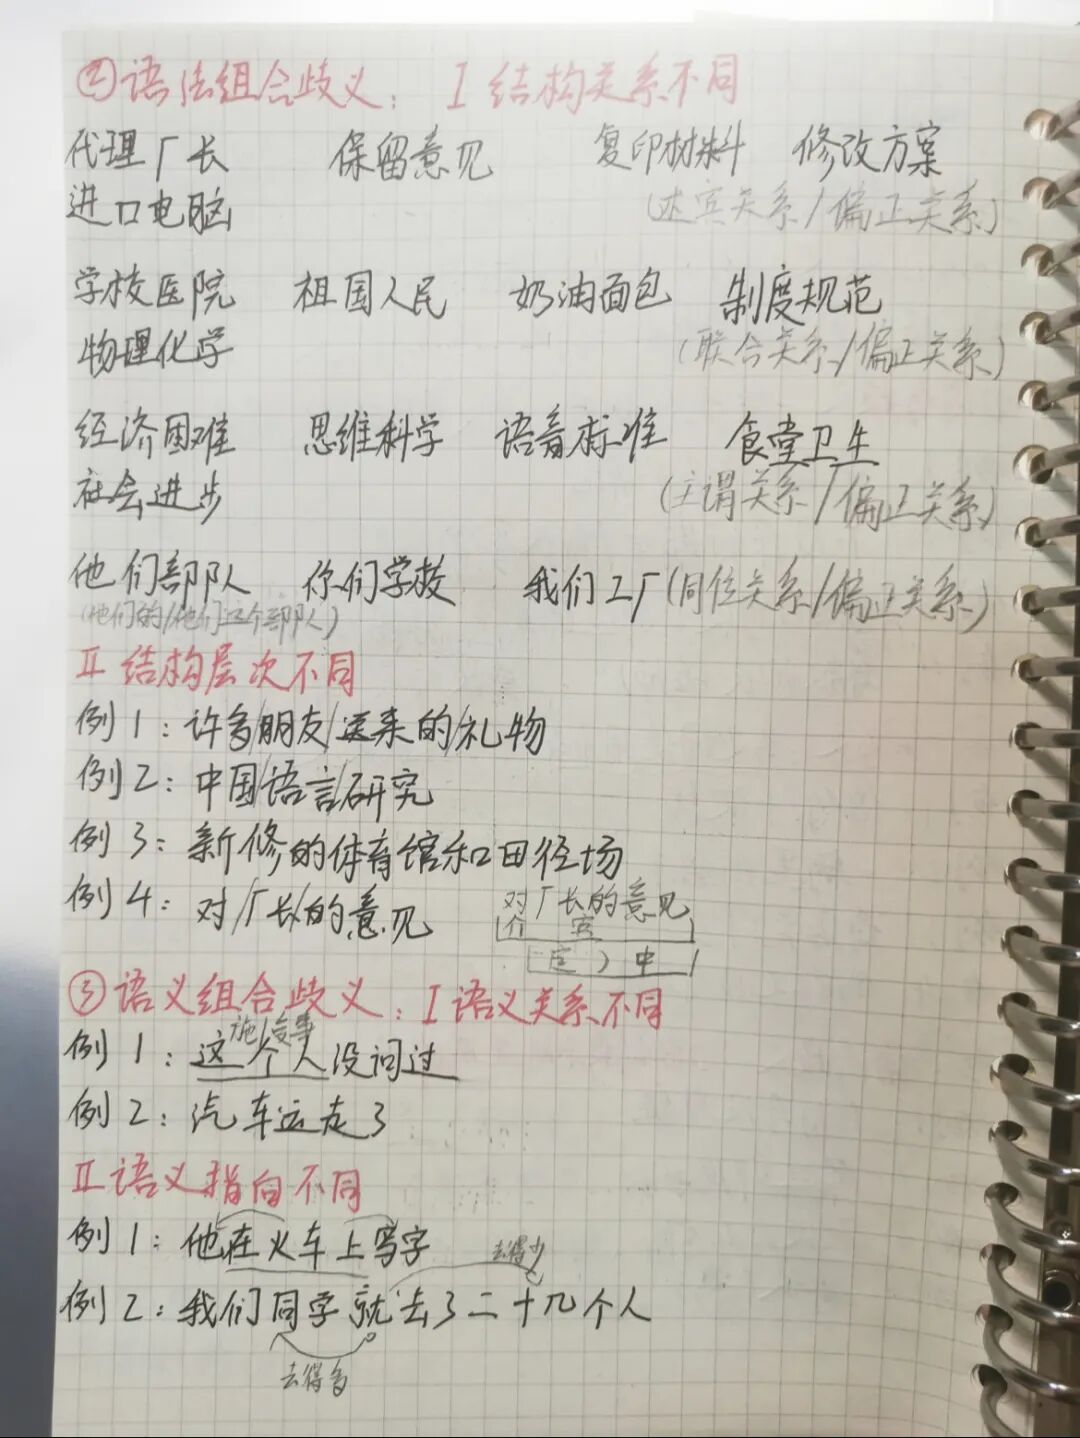 ②语法组合歧义：Ⅰ结构关系不同
代理厂长 保留意见 复印材料 修改方案
进口电脑 (述宾关系/偏正关系)
学校医院 祖国人民 奶油面包 制度规范
物理化学 (联合关系/偏正关系)
经济困难 思维科学 语音标准 食堂卫生
社会进步 (主谓关系/偏正关系)
他们部队 你们学校 我们工厂(同位关系/偏正关系)
(他们的/他们这个部队)
Ⅱ结构层次不同
例1：许多/朋友/送来的/礼物
例2：中国/语言/研究
例3：新修的体育馆和田径场
例4：对/厂长/的意见 对厂长的意见
介 宾
定 ) 中
③语义组合歧义：Ⅰ语义关系不同
施/受事
例1：这个人没问过
例2：汽车运走了
Ⅱ语义指向不同
例1：他在火车上写字
去得少
例2：我们同学就去了二十几个人
去得多